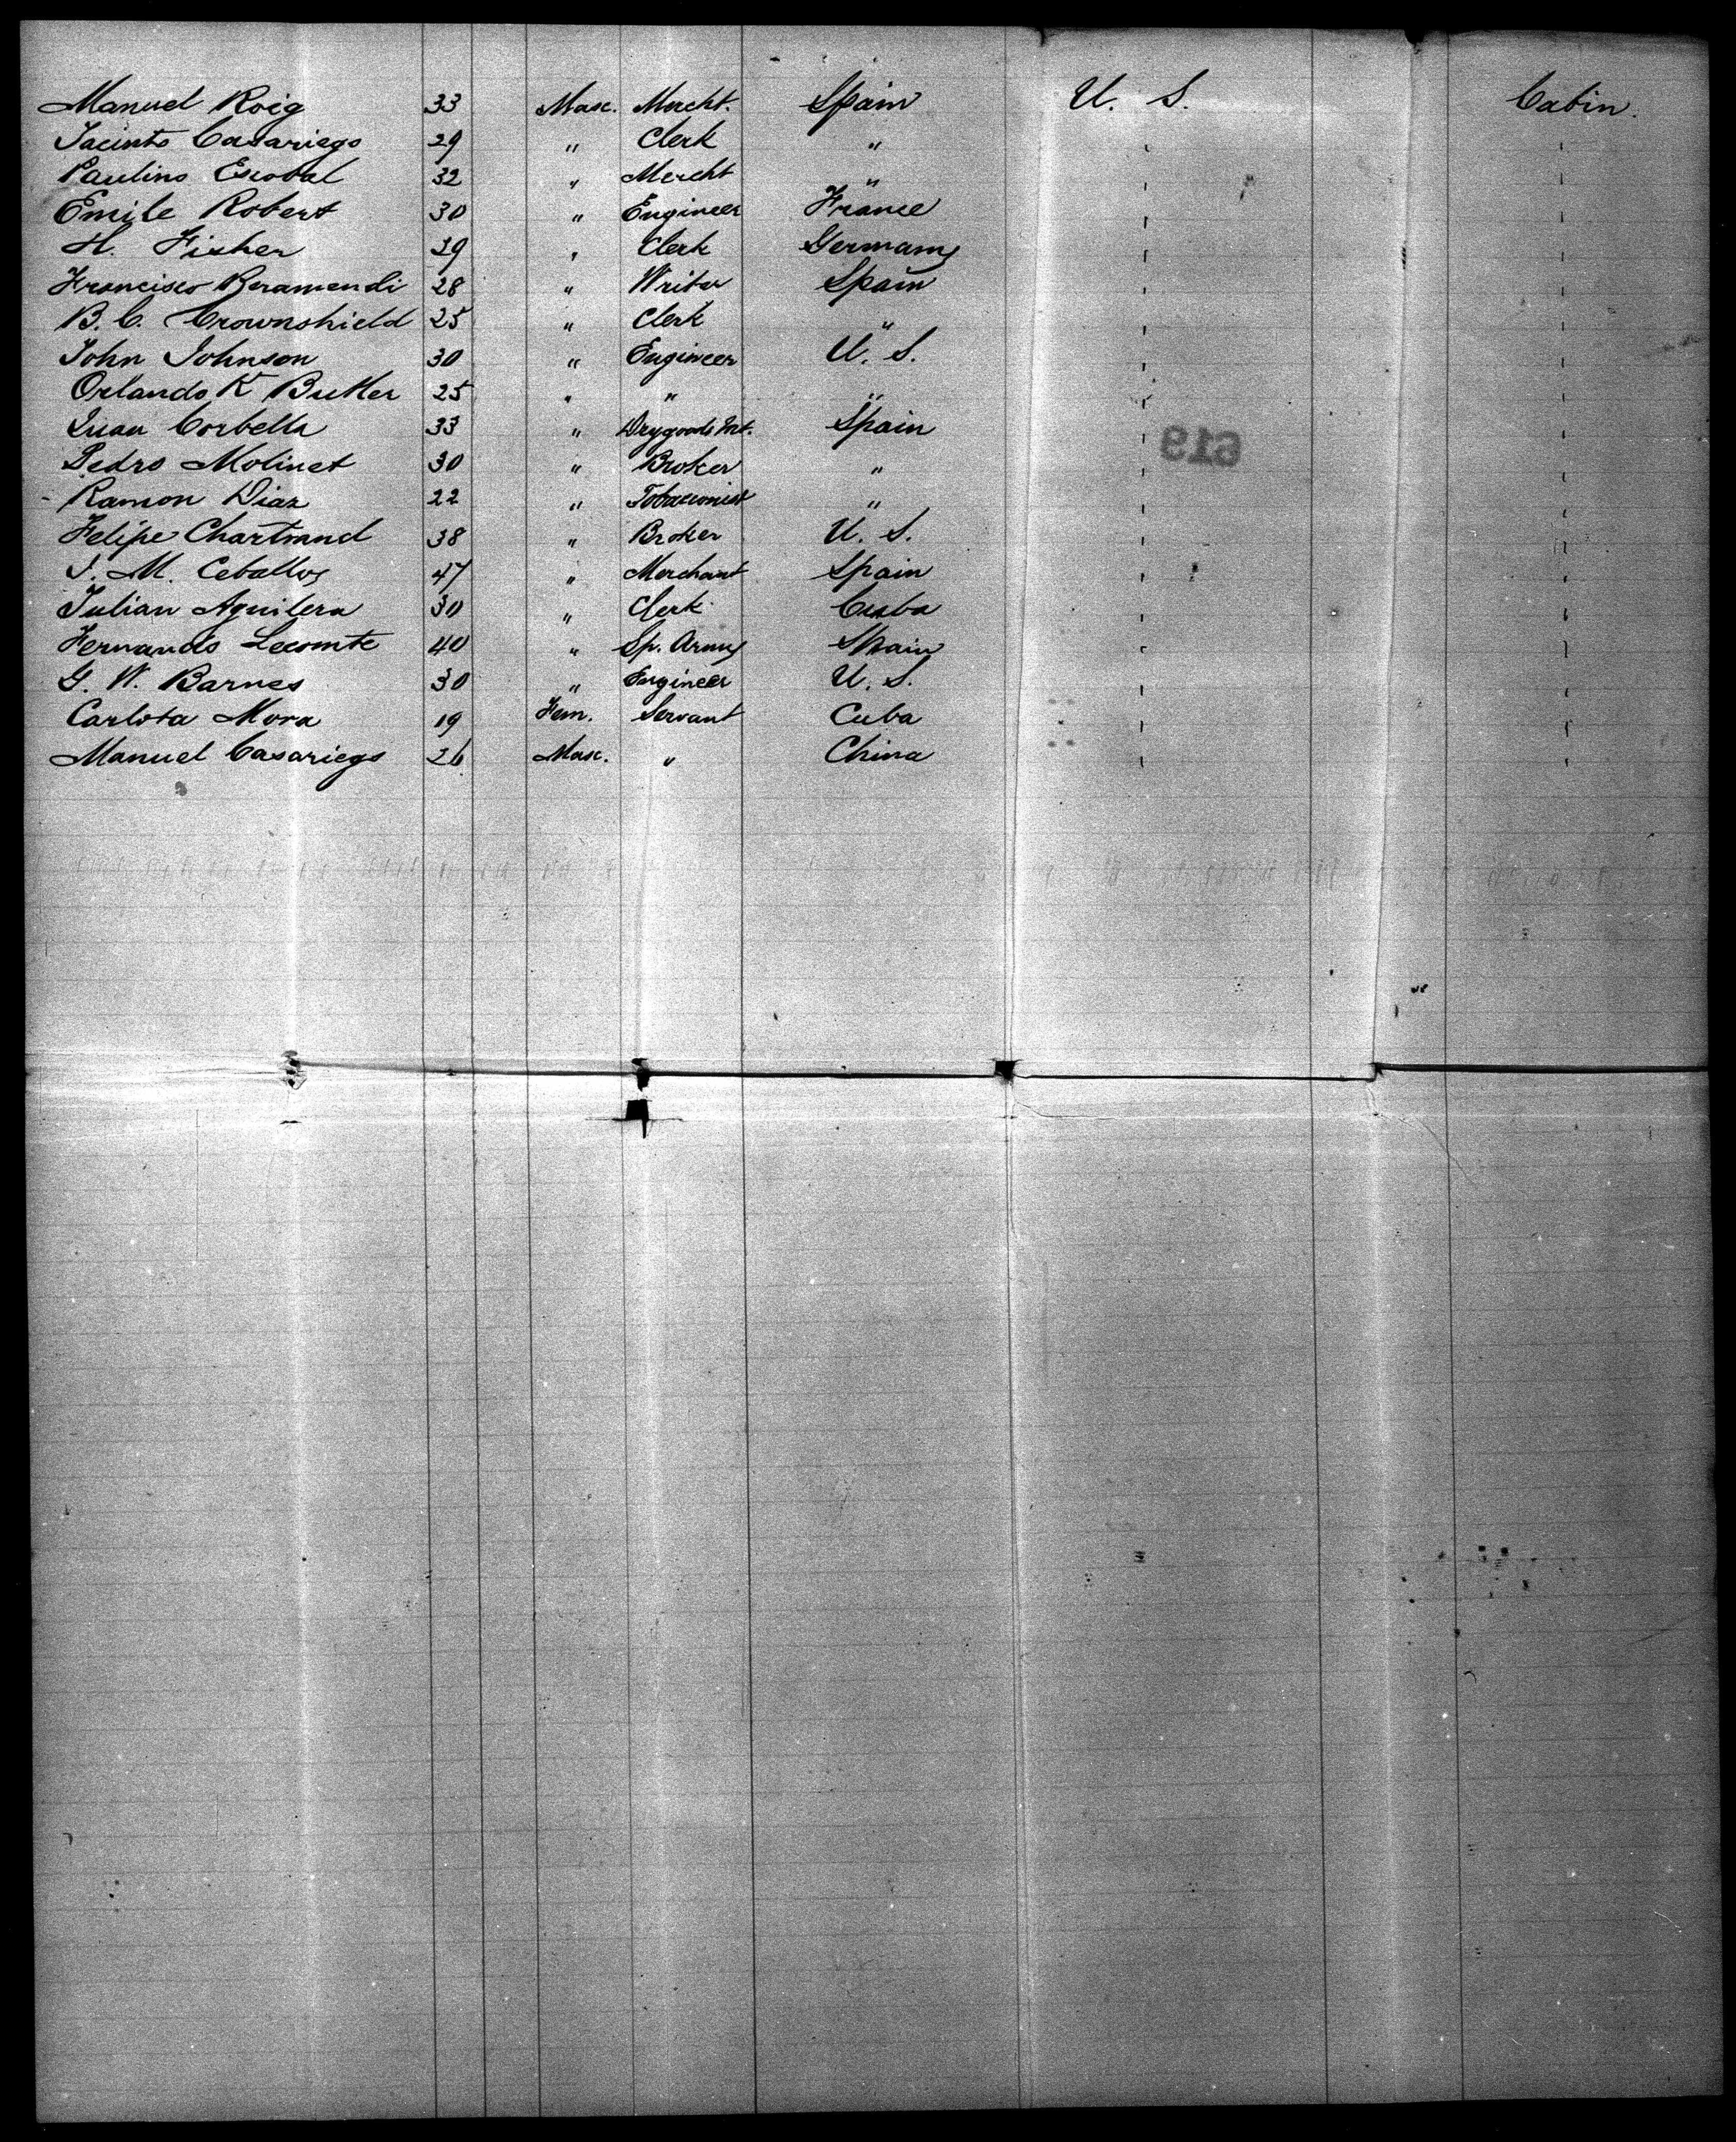 Manuel Roig 33 Masc. Mercht. Spain U. S. Cabin.
Jacinto Casariego 29 " Clerk " " "
Paulino Escobal 32 " Mercht " " "
Emile Robert 30 " Engineer France " "
H. Fisher 29 " Clerk Germany " "
Francisco Beramendi 28 " Writer Spain " "
B. C. Crownshield 25 " Clerk " " "
John Johnson 30 " Engineer U. S. " "
Orlando K Butler 25 " " " " "
Juan Corbella 33 " Drygoods Spain " "
619
Pedro Molinet 30 " Broker " " "
Ramon Diaz 22 " Tobacconist " " "
Felipe Chartrand 38 " Broker U. S. " "
J. M. Ceballos 47 " Merchant Spain " "
Julian Aguilera 30 " Clerk Cuba " "
Fernando Lecomte 40 " Sp. Army Spain " "
G. W. Barnes 30 " Engineer U. S. " "
Carlota Mora 19 Fem. Servant Cuba " "
Manuel Casariego 26 Masc. " China " "